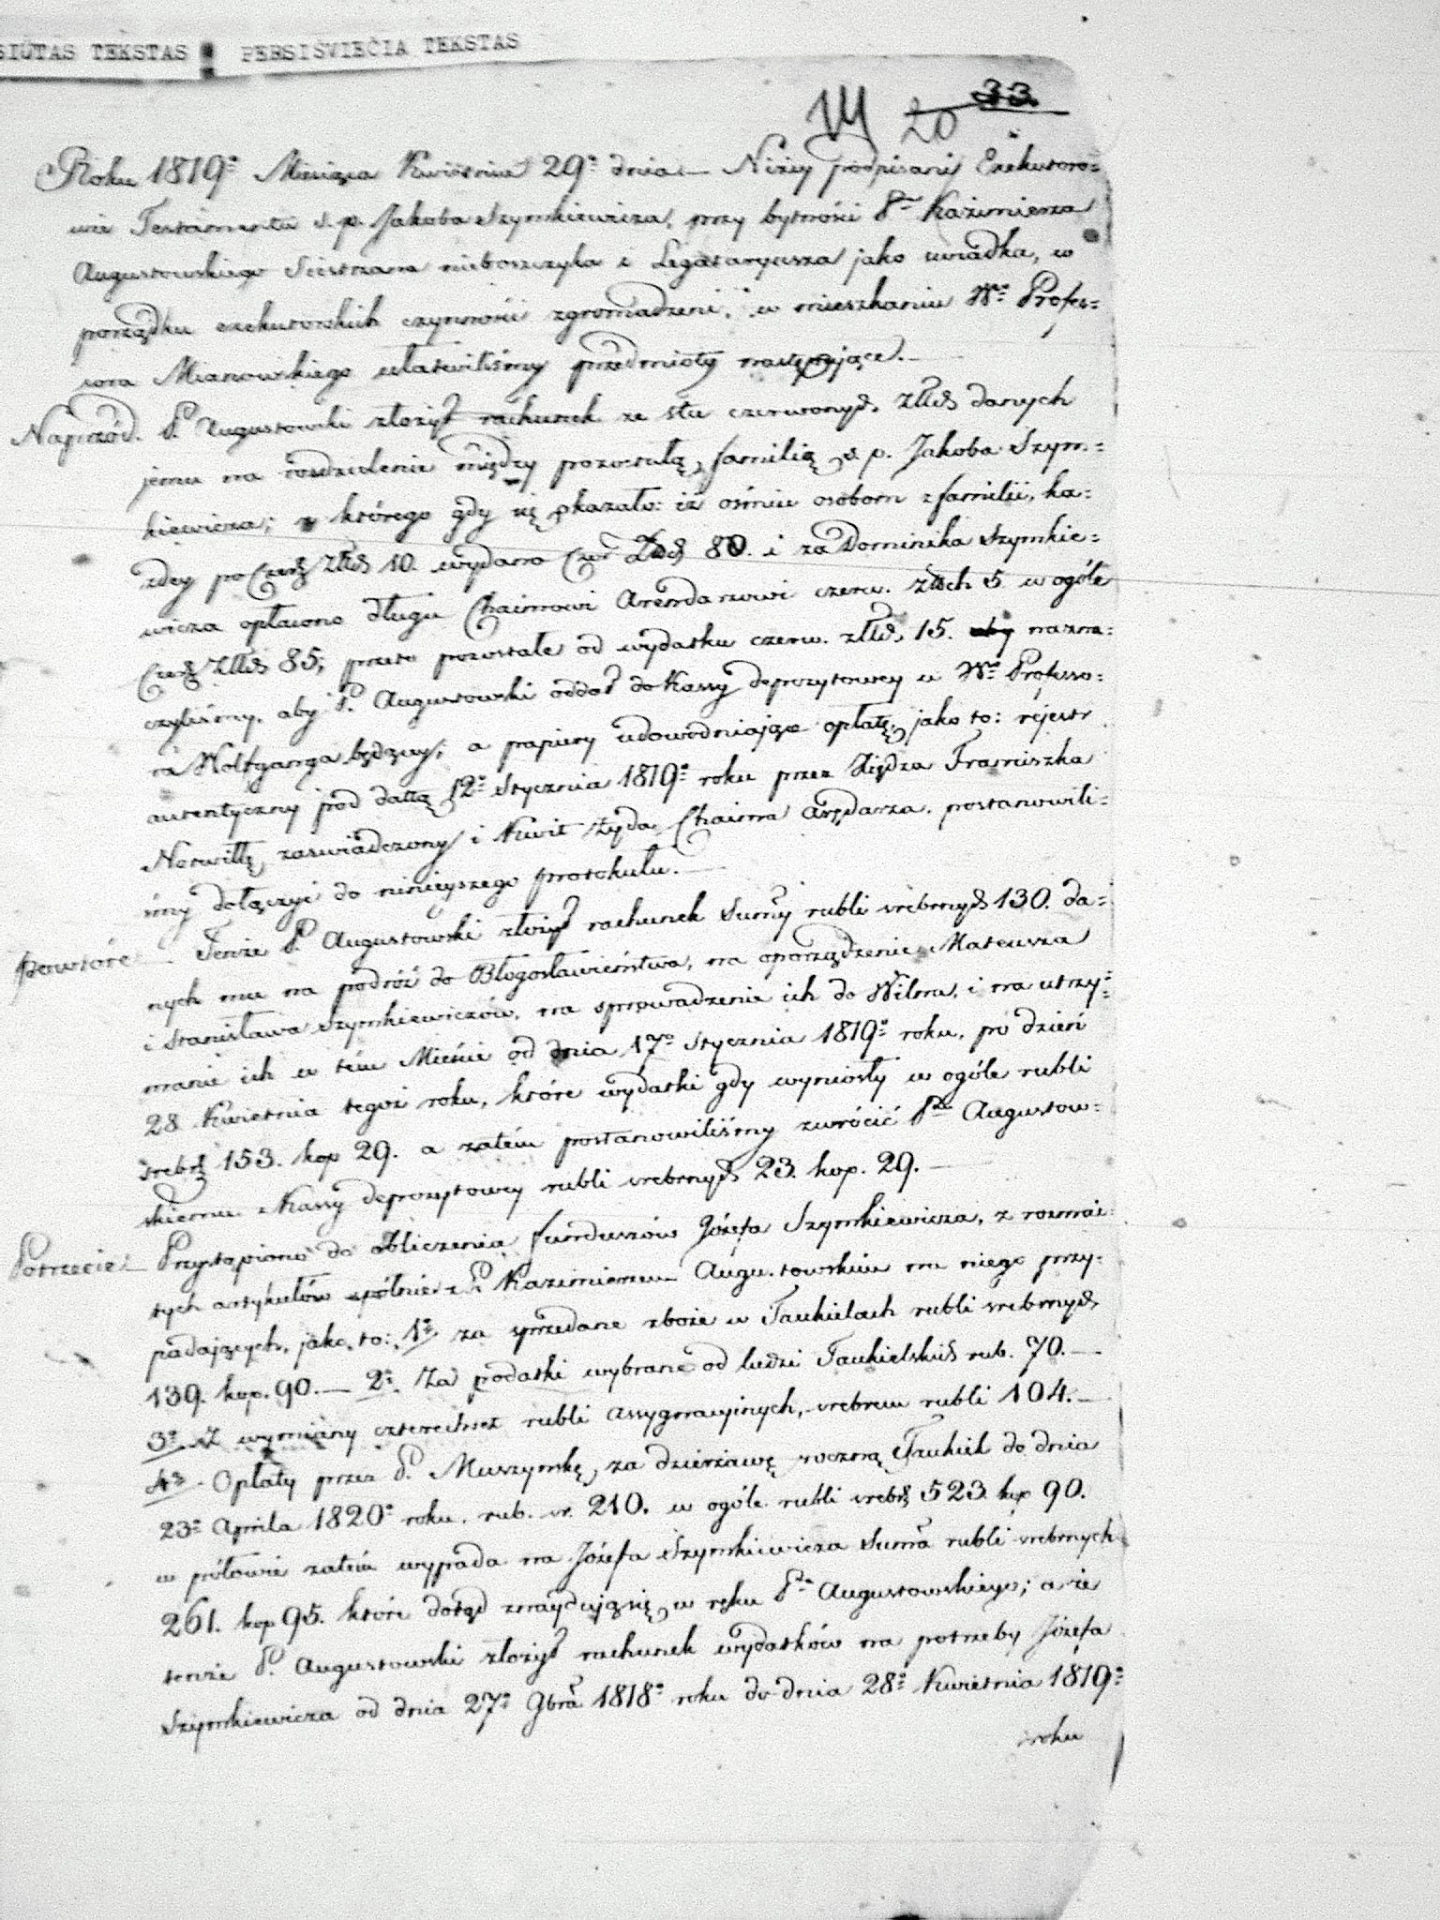 SIŪTAS TEKSTAS PERSIŠVIEČIA TEKSTAS
33.
20
Roku 1819º Miesiąca Kwietnia 29º dnia — Niżey podpisani Exekutoro=
wie Testamentu ś. p. Jakóba Szymkiewicza, przy bytności Pna Kazimierza
Augustowskiego Siestrzana nieboszczyka i Legataryusza jako świadka, w
porządku exekutorskich czynności zgromadzeni, w mieszkaniu Wº Profes=
sora Mianowskiego ułatwiliśmy przedmioty następujące. —
Naprzód. P. Augustowski złożył rachunek ze stu czerwonych złłch danych
jemu na rozdzielenie między pozostałą familią ś. p. Jakóba Szym=
kiewicza; z którego gdy się okazało: iż ośmiu osobom z familii, ka=
żdey po Czerł Złłch 10. wydano Czer Złłch 80. i za Dominika Szymkie=
wicza opłacono długu Chaimowi Arendarzowi czerw. złłch 5. w ogóle
Czerł Złłch 85; przeto pozostałe od wydatku czerw. złłch 15. nazna=
czyliśmy, aby P. Augustowski oddał do Kassy depozytowey u Wº Professo=
ra Wolfganga będącey; a papiery udowodniające opłatę, jako to: rejestr
autentyczny pod dattą 12º Stycznia 1819º roku przez Xiędza Franciszka
Norwiłłę zaświadczony i Kwit Żyda Chaima Arędarza, postanowili=
śmy dołączyć do ninieyszego protokułu. —
Powtóre — Tenże P. Augustowski złożył rachunek Summy rubli srebrnych 130. da=
nych mu na podróż do Błogosławieństwa, na oporządzenie Mateusza
i Stanisława Szymkiewiczów, na sprowadzenie ich do Wilna, i na utrzy=
manie ich w tém Mieście od dnia 17º Stycznia 1819º roku, po dzień
28 Kwietnia tegoż roku, które wydatki gdy wyniosły w ogóle rubli
srebrł 153. kop 29. a zatém postanowiliśmy zwrócić Pnu Augustow=
skiemu z Kassy depozytowey rubli srebrnych 23. kop. 29. —
Potrzecie — Przystąpiono do obliczenia funduszów Józefa Szymkiewicza, z rozmai=
tych artykułów spólnie z P. Kazimierzem Augustowskim na niego przy=
padających, jako to: 1º za sprzedane zboże w Taukielach rubli srebrnych
139. kop. 90. — 2º Za podatki wybrane od ludzi Taukielskich rub. 70. —
3º Z wymiany czterechset rubli assygnacyinych, srebrem rubli 104. —
4º Opłaty przez P. Muszymkę za dzierżawę roczną Taukiel do dnia
23º Aprila 1820º roku. rub. sr. 210. w ogóle rubli srebrł 523. kop 90.
w półowie zatém wypada na Józefa Szymkiewicza Summa rubli srebrnych
261. kop 95. które dotąd znaydują się w ręku Pna Augustowskiego; a że
tenże P. Augustowski złożył rachunek wydatków na potrzeby Józefa
Szymkiewicza od dnia 27º 9bra 1818º roku do dnia 28º Kwietnia 1819º
roku